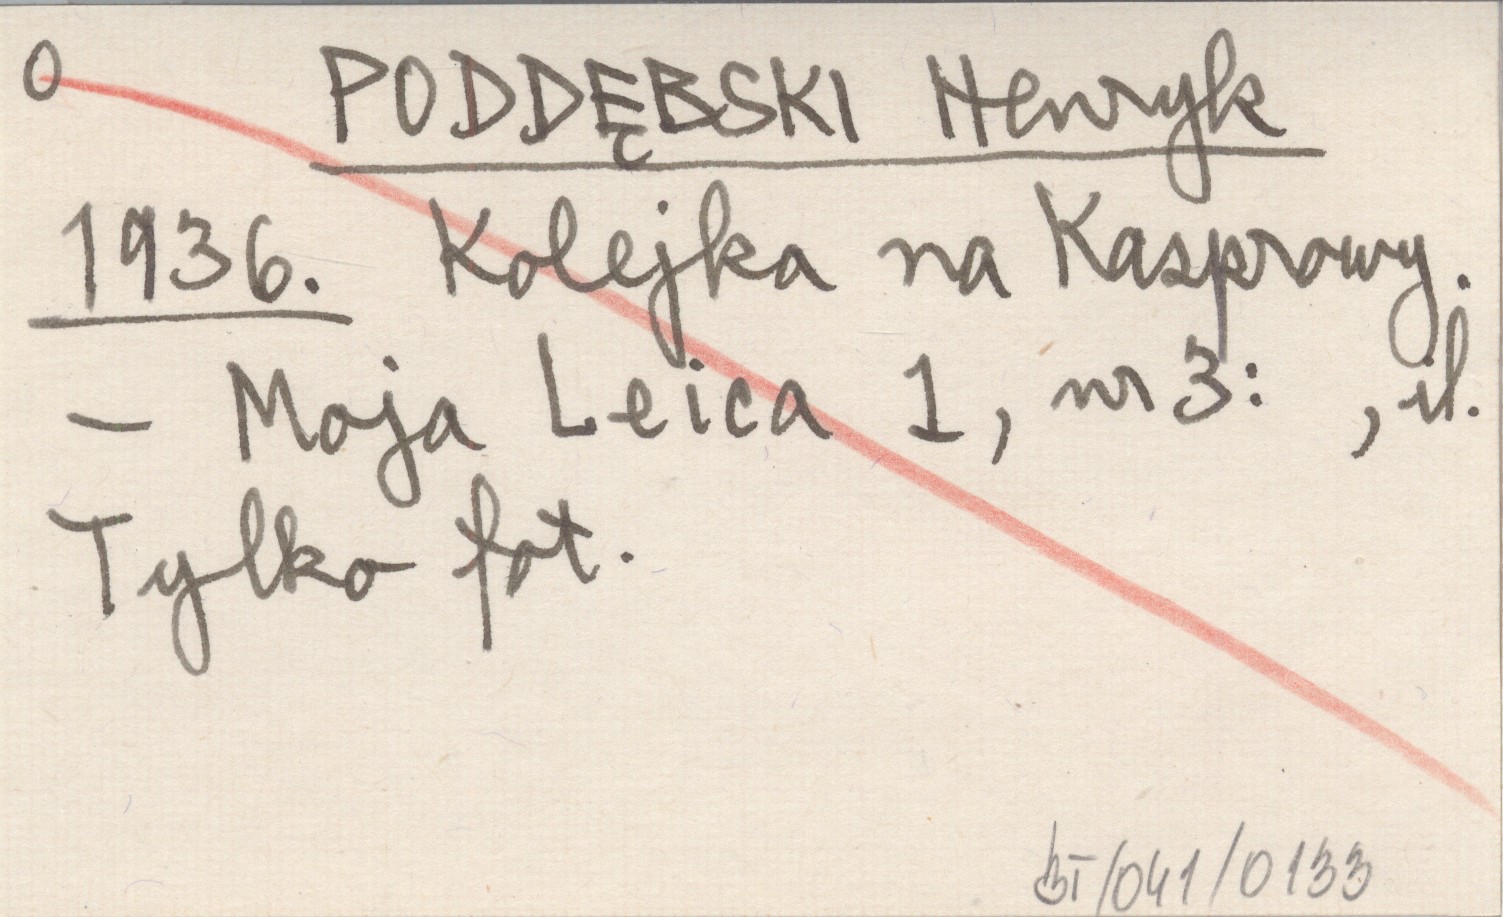 0 PODDĘBSKI Henryk
1936. Kolejka na Kasprowy.
– Moja Leica 1, nr 3: , il.
Tylko fot.
BT/041/0133